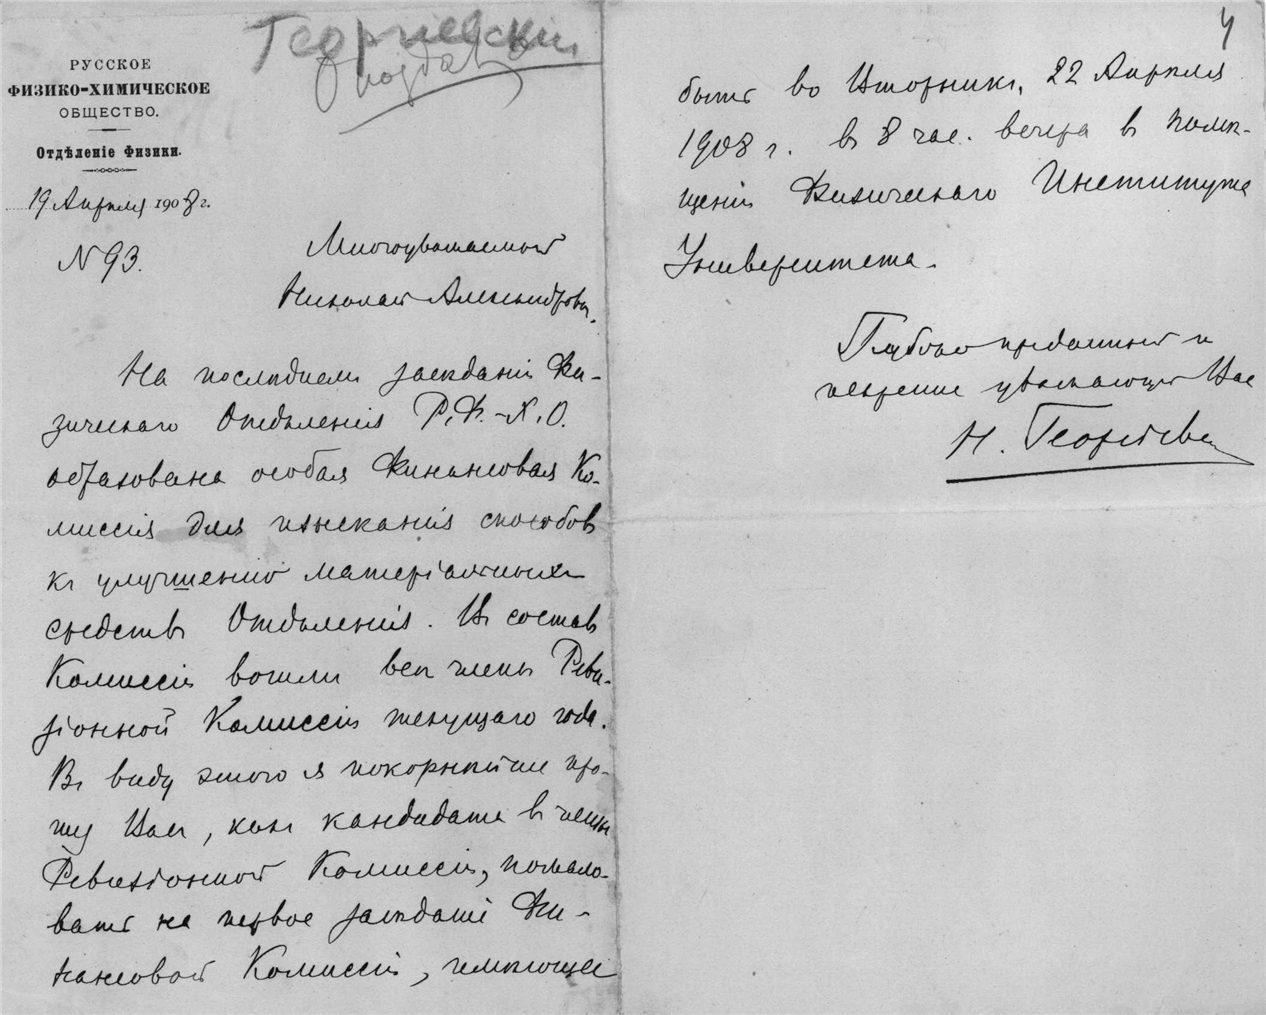 Георгиевский
РУССКОЕ
ФИЗИКО-ХИМИЧЕСКОЕ
ОБЩЕСТВО.
Отдѣленіе Физики.
19 Апрѣля 1908 г.
N 93.
Многоуважаемый
Николай Александрович.
На послѣднем засѣданіи Фи-
зическаго Отдѣленія Р.Ф.-Х.О.
образована особая Финансовая Ко-
миссія для изысканія способов
къ улучшенію матеріальных
средствъ Отдѣленія. Въ состав
Комиссіи вошли всѣ члены Реви-
зіонной Комиссіи текущаго года.
Въ виду этого я покорнѣйше про-
шу Вас, какъ кандидата в члены
Ревизіонной Комиссіи, пожало-
вать на первое засѣданіе Фи-
нансовой Комиссіи, имѣющее
4
быть во Вторникъ, 22 Апрѣля
1908 г. в 8 час. вечера в помѣ-
щеніи Физическаго Института
Университета.
Глубоко преданный и
искренне уважающій Вас
Н. Георгіевскій